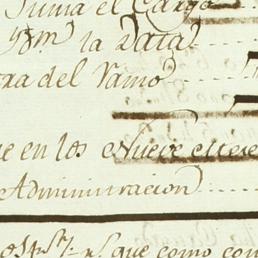 Suma el Cargo
Ydm la Data
ra del Ramo
e en los Nueve
Administracion
que como con